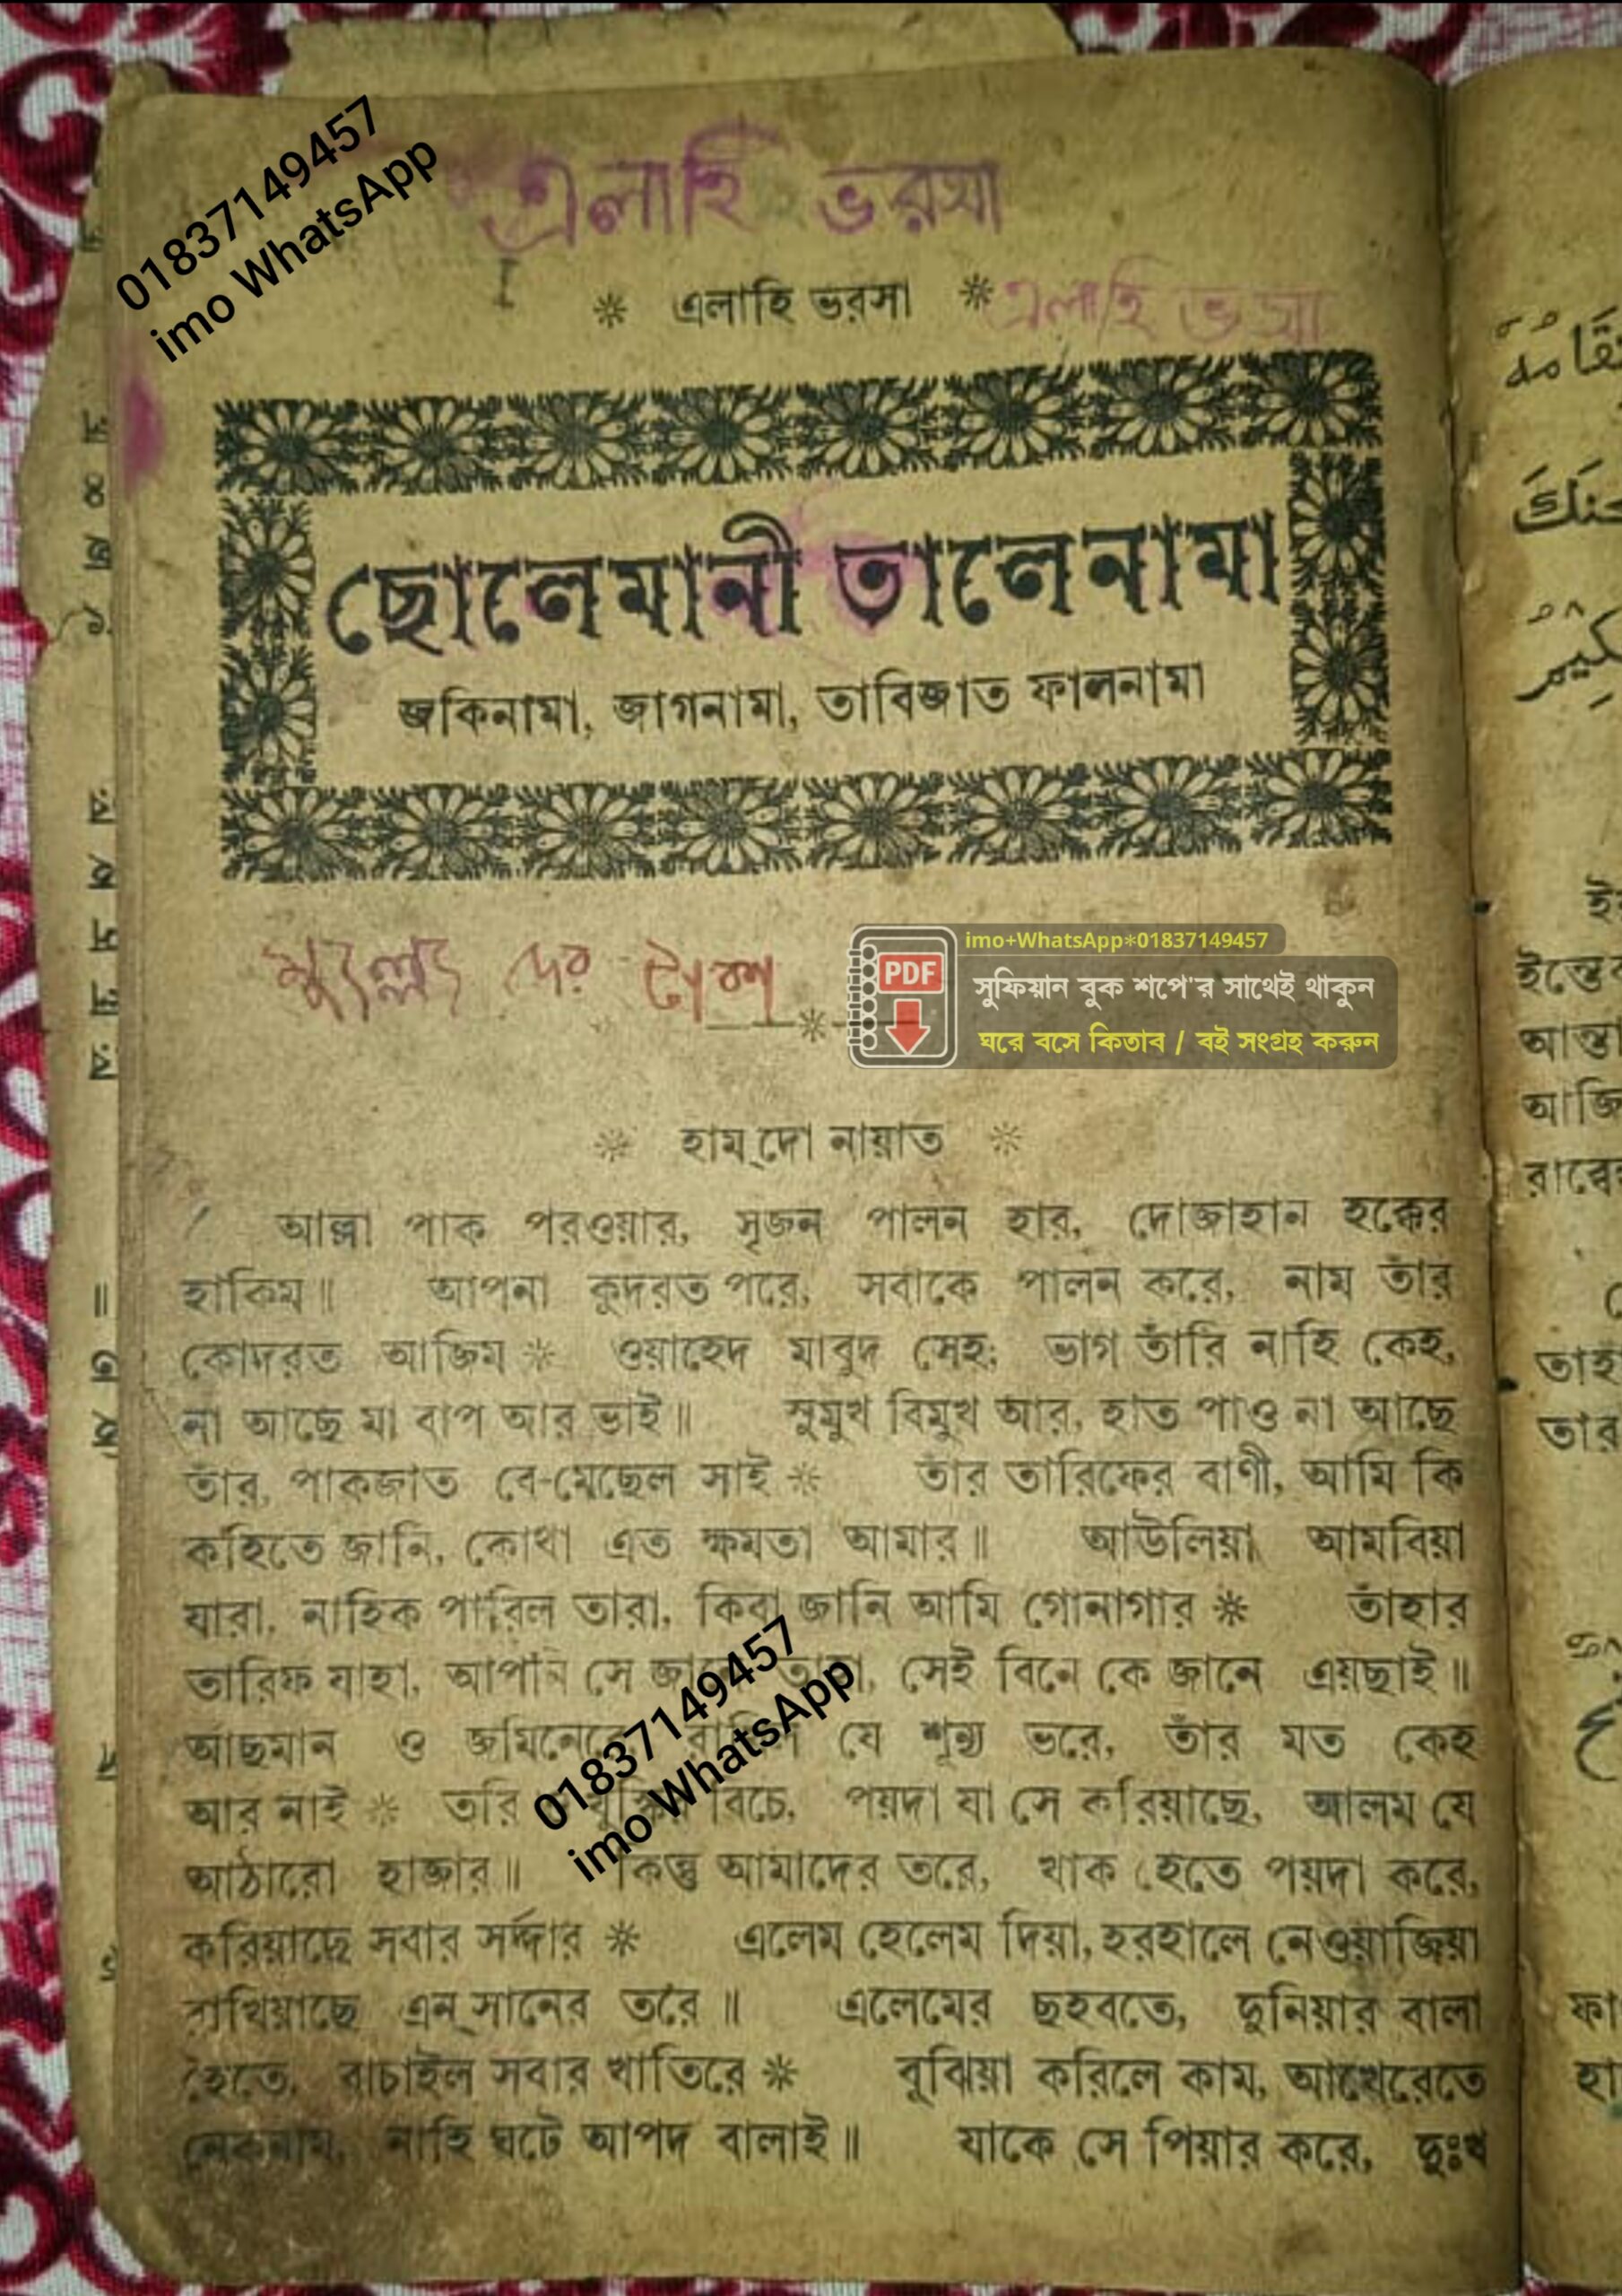 01837149457
imo WhatsApp
এলাহি ভরসা
* এলাহি ভরসা * এলাহি ভসা
ছোলেমানী তালেনামা
জকিনামা, জাগনামা, তাবিজাত ফালনামা
imo+WhatsApp*01837149457
PDF
সুফিয়ান বুক শপে'র সাথেই থাকুন
ঘরে বসে কিতাব / বই সংগ্রহ করুন
* হাম্দো নায়াত *
আল্লা পাক পরওয়ার, সৃজন পালন হার, দোজাহান হক্কের
হাকিম॥ আপনা কুদরত পরে, সবাকে পালন করে, নাম তাঁর
কোদরত আজিম * ওয়াহেদ মাবুদ সেহ; ভাগ তাঁরি নাহি কেহ,
না আছে মা বাপ আর ভাই॥ সুমুখ বিমুখ আর, হাত পাও না আছে
তাঁর, পাকজাত বে-মেছেল সাই * তাঁর তারিফের বাণী, আমি কি
কহিতে জানি, কোথা এত ক্ষমতা আমার॥ আউলিয়া আমবিয়া
যারা, নাহিক পারিল তারা, কিবা জানি আমি গোনাগার * তাঁহার
তারিফ যাহা, আপনি সে সেই বিনে কে জানে এয়ছাই॥
আছমান ও যে শূন্য ভরে, তাঁর মত কেহ
আর নাই * তরি বিচে, পয়দা যা সে করিয়াছে, আলম যে
আঠারো হাজার॥ কিন্তু আমাদের তরে, খাক হেতে পয়দা করে,
করিয়াছে সবার সর্দ্দার * এলেম হেলেম দিয়া, হরহালে নেওয়াজিয়া
রাখিয়াছে এন্সানের তরে॥ এলেমের ছহবতে, দুনিয়ার বালা
হৈতে, বাচাইল সবার খাতিরে * বুঝিয়া করিলে কাম, আখেরেতে
নেকনাম, নাহি ঘটে আপদ বালাই॥ যাকে সে পিয়ার করে, দুঃখ
01837149457
imo WhatsApp